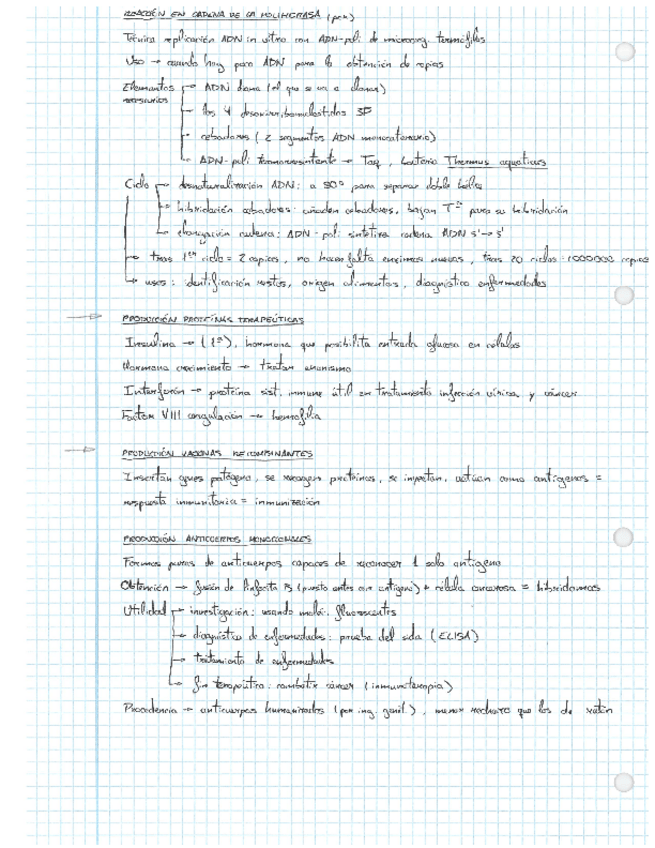 REACCIÓN EN CADENA DE LA POLIMERASA (pcr)
Técnica replicación ADN in vitro con ADN-poli de microorg. termófilos
Uso → cuando hay poco ADN para la obtención de copias
Elementos necesarios → ADN diana (el que se va a clonar)
→ los 4 3P
→ cebadores (2 segmentos ADN monocatenario)
→ ADN-poli termorresistente → Taq, bacteria Thermus aquaticus
Ciclo → desnaturalización ADN: a 90º para separar doble hélice
→ hibridación cebadores: añaden cebadores, bajan Tª para su hibridación
→ elongación cadena: ADN-pol: sintetiza cadena ADN 5'→3'
→ tras 1er ciclo = 2 copias, no hacen falta enzimas nuevas, tras 20 ciclos: 1000000 copias
→ usos: identificación restos, origen alimentos, diagnóstico enfermedades
→ PRODUCCIÓN PROTEÍNAS TERAPEÚTICAS
Insulina → (1ª), hormona que posibilita entrada glucosa en células
Hormona crecimiento → tratar enanismo
Interferón → proteína sist. inmune útil en tratamiento infección vírica y cáncer
Factor VIII coagulación → hemofilia
→ PRODUCCIÓN VACUNAS RECOMBINANTES
Insertan genes patógeno, se recogen proteínas, se inyectan, actúan como antígenos =
respuesta inmunitaria = inmunización
PRODUCCIÓN ANTICUERPOS MONOCLONALES
Formas puras de anticuerpos capaces de reconocer 1 solo antígeno
Obtención → fusión de linfocito B (puesto antes con antígeno) + célula cancerosa = hibridomas
Utilidad → investigación: usando moléc. fluorescentes
→ diagnóstico de enfermedades: prueba del sida (ELISA)
→ tratamiento de enfermedades
→ fin terapéutico: combatir cáncer (inmunoterapia)
Procedencia → anticuerpos humanizados (por ing. genét.), menor rechazo que los de ratón